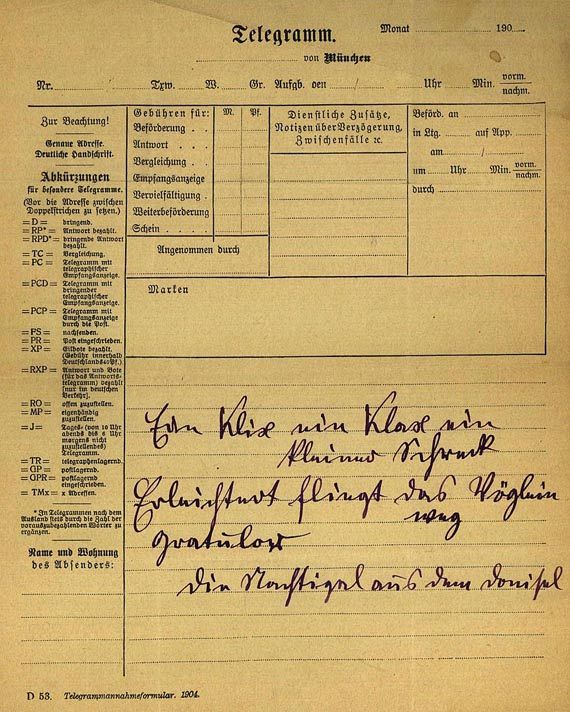 Telegramm.
Monat 190
von München
Nr. Txw. W. Gr. Aufgb. den / Uhr Min. vorm. nachm.
Zur Beachtung!
Genaue Adresse.
Deutliche Handschrift.
Abkürzungen
für besondere Telegramme.
(Vor die Adresse zwischen
Doppelstrichen zu setzen.)
=D= dringend.
=RP*= Antwort bezahlt.
=RPD*= dringende Antwort
bezahlt.
=TC= Vergleichung.
=PC= Telegramm mit
telegraphischer
Empfangsanzeige.
=PCD= Telegramm mit
dringender
telegraphischer
Empfangsanzeige.
=PCP= Telegramm mit
Empfangsanzeige
durch die Post.
=FS= nachsenden.
=PR= Post eingeschrieben.
=XP= Eilbote bezahlt.
(Gebühr innerhalb
Deutschlands 40 Pf.)
=RXP= Antwort und Bote
(für das Antworts-
telegramm) bezahlt
[nur im deutschen
Verkehr].
=RO= offen zuzustellen.
=MP= eigenhändig
zuzustellen.
=J= Tages- (von 10 Uhr
abends bis 6 Uhr
morgens nicht
zuzustellendes)
Telegramm.
=TR= telegraphenlagernd.
=GP= postlagernd.
=GPR= postlagernd
eingeschrieben.
=TMx= x Adressen.
* In Telegrammen nach dem
Ausland stets durch die Zahl der
vorauszubezahlenden Wörter zu
ergänzen.
Name und Wohnung
des Absenders:
Gebühren für: M. Pf.
Beförderung . .
Antwort . . .
Vergleichung . .
Empfangsanzeige
Vervielfältigung .
Weiterbeförderung
Schein . . . .
Angenommen durch
Dienstliche Zusätze,
Notizen über Verzögerung,
Zwischenfälle 2c.
Beförd. an
in Ltg. auf App.
am /
um Uhr Min. vorm. nachm.
durch
Marken
Ein Klix ein Klax ein
kleiner Schreck
Erleichtert fliegt das Vöglein
weg
gratulor
die Nachtigal aus dem Donisel
D 53. Telegrammannahmeformular. 1904.